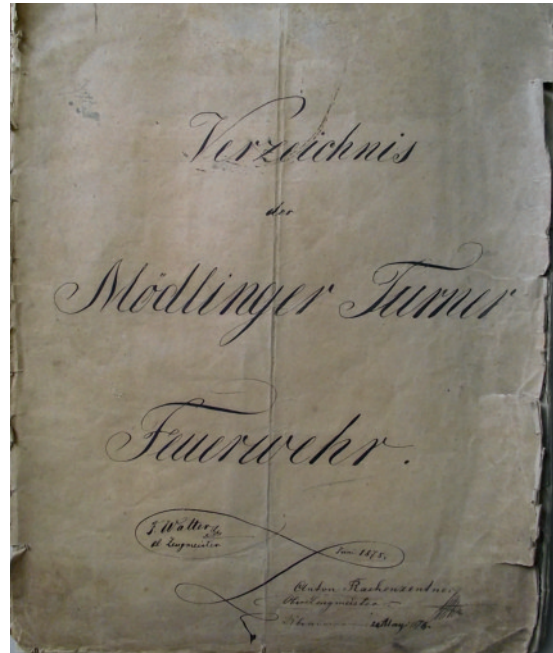 Verzeichnis
der
Mödlinger Turner
Feuerwehr.
J. Walter
Zeugmeister
Juni 1875.
Anton Rachenzentner
Oberzeugmeister
May